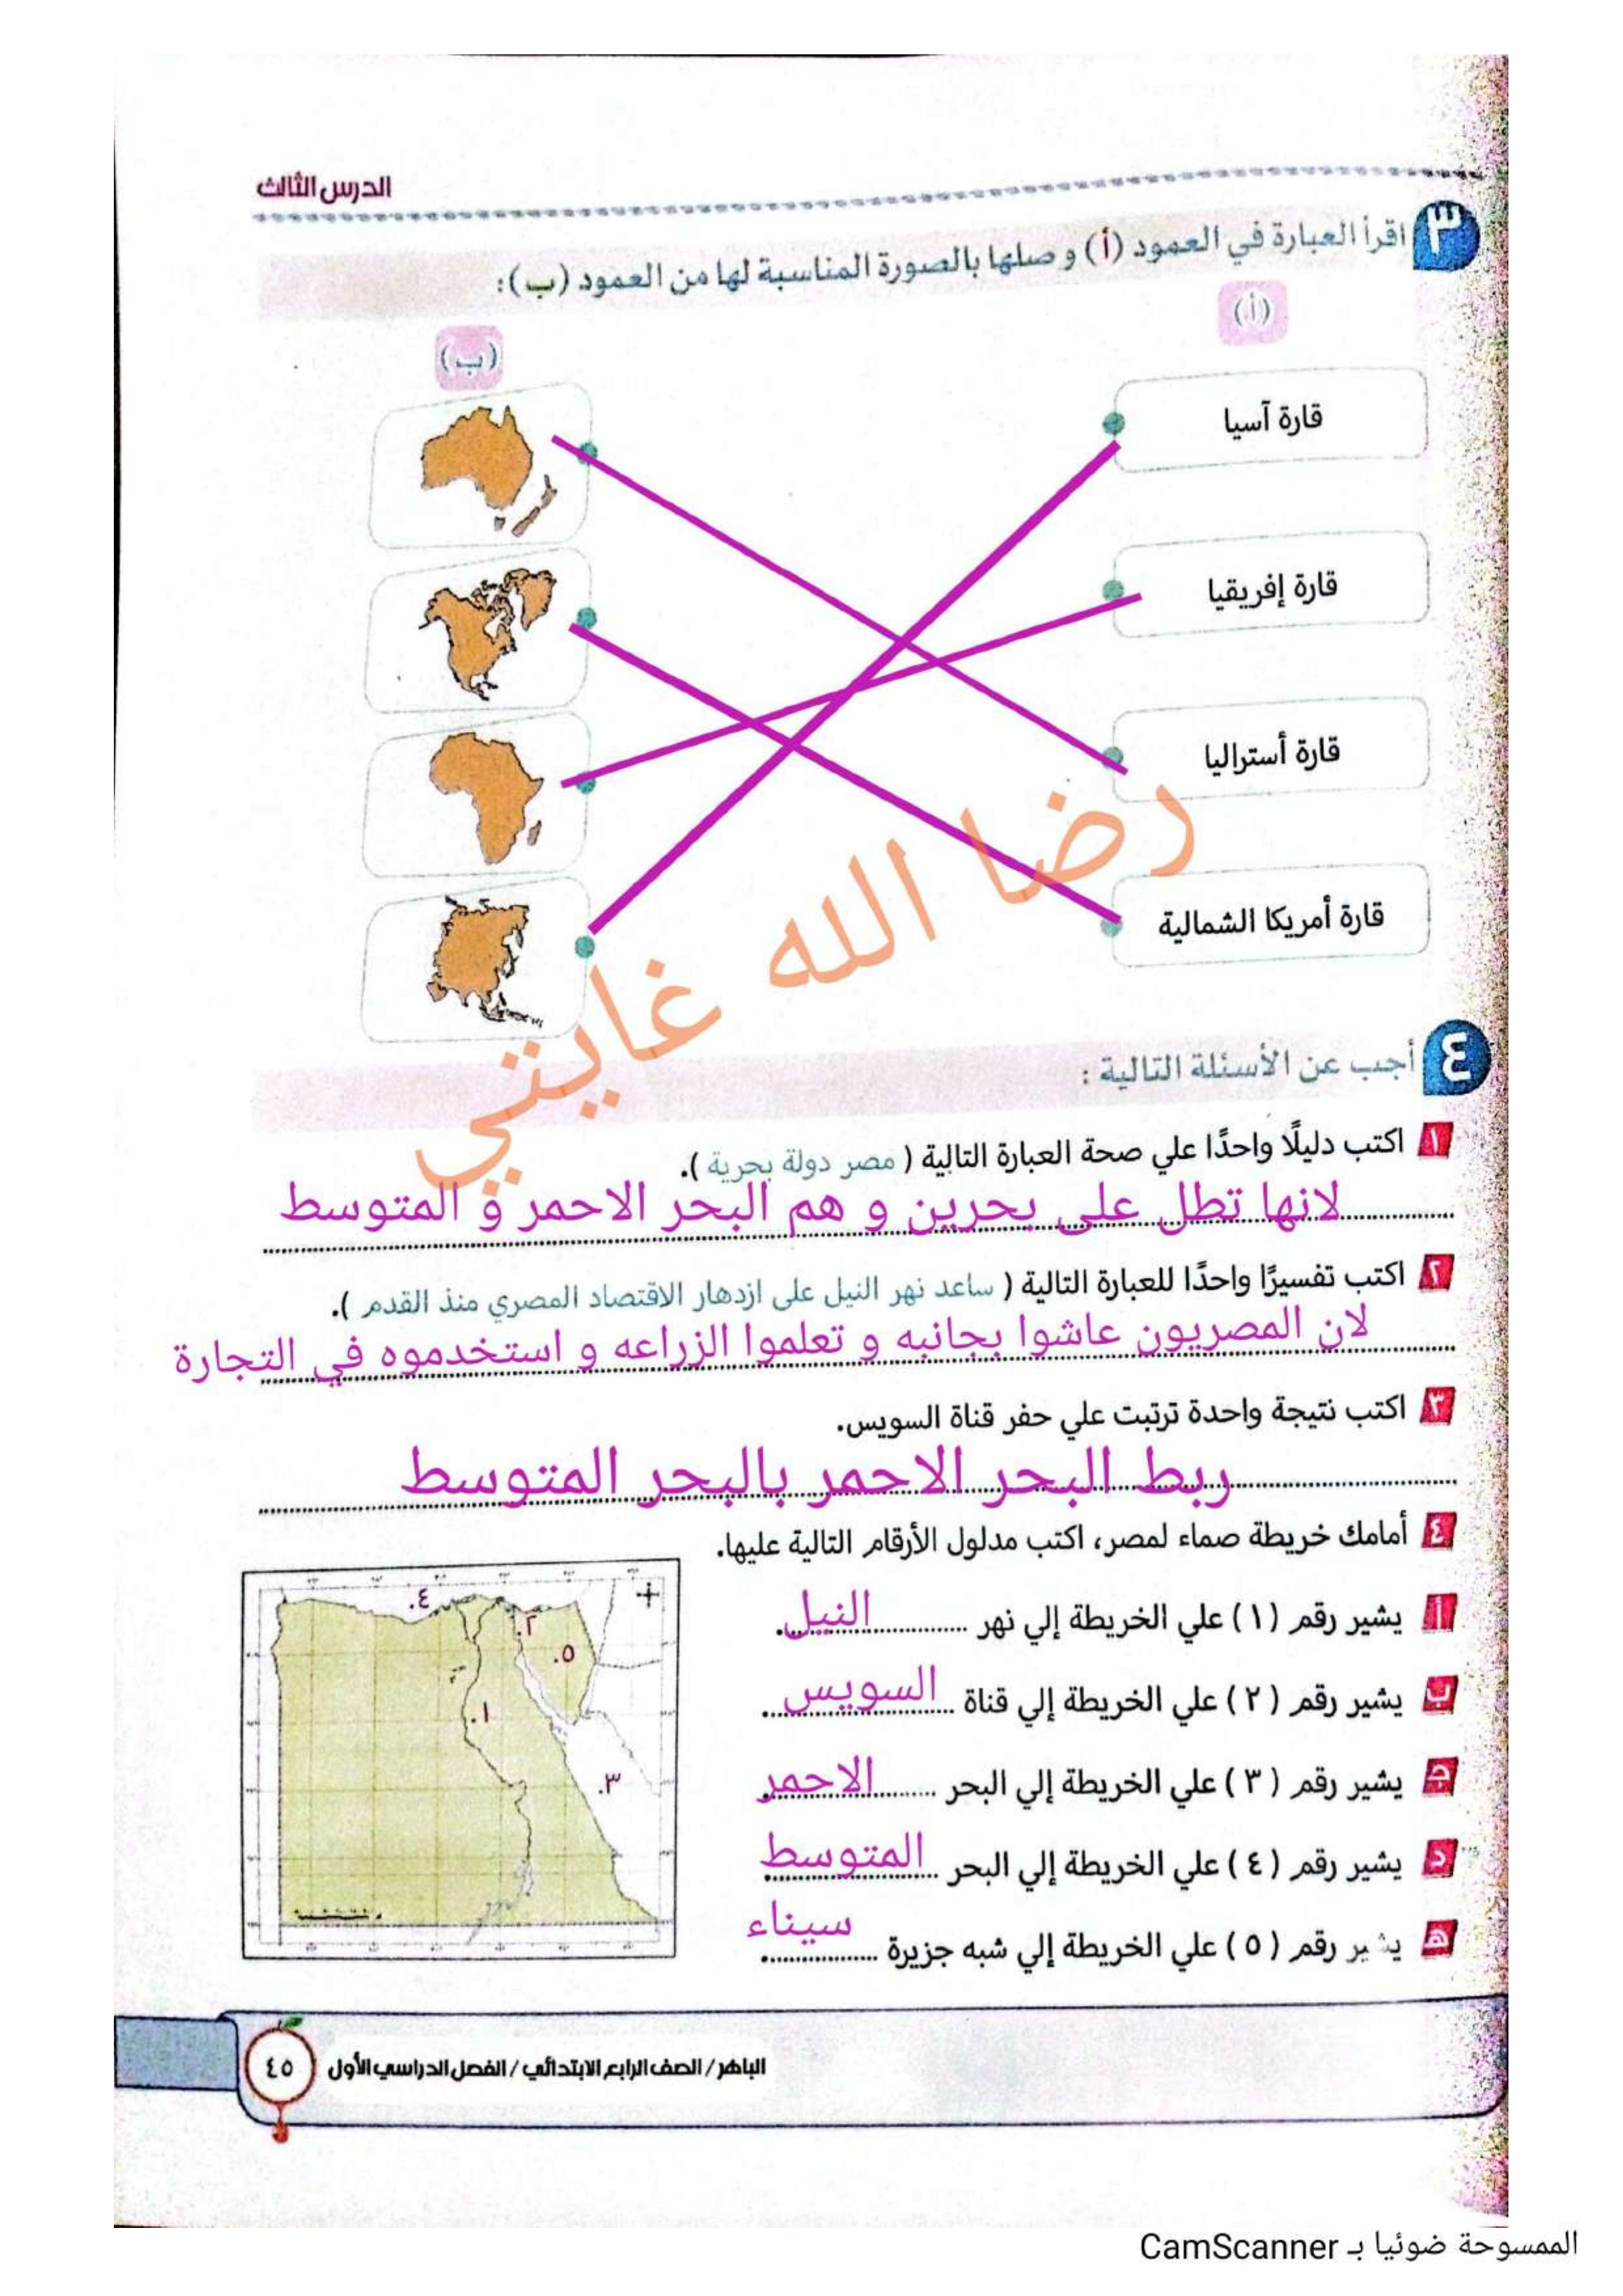 الدرس الثالث
٣ اقرأ العبارة في العمود (أ) و صلها بالصورة المناسبة لها من العمود (ب):
(أ)
(ب)
قارة آسيا
قارة إفريقيا
قارة أستراليا
قارة أمريكا الشمالية
رضا الله غايتي
٤ أجب عن الأسئلة التالية :
١ اكتب دليلًا واحدًا علي صحة العبارة التالية ( مصر دولة بحرية ).
لانها تطل على بحرين و هم البحر الاحمر و المتوسط
٢ اكتب تفسيرًا واحدًا للعبارة التالية ( ساعد نهر النيل على ازدهار الاقتصاد المصري منذ القدم ).
لان المصريون عاشوا بجانبه و تعلموا الزراعه و استخدموه في التجارة
٣ اكتب نتيجة واحدة ترتبت علي حفر قناة السويس.
ربط البحر الاحمر بالبحر المتوسط
٤ أمامك خريطة صماء لمصر، اكتب مدلول الأرقام التالية عليها.
أ يشير رقم (١) علي الخريطة إلي نهر النيل.
ب يشير رقم (٢) علي الخريطة إلي قناة السويس.
ج يشير رقم (٣) علي الخريطة إلي البحر الاحمر.
د يشير رقم (٤) علي الخريطة إلي البحر المتوسط.
هـ يشير رقم (٥) علي الخريطة إلي شبه جزيرة سيناء.
.٤
.٢
.٥
.١
.٣
الباهر / الصف الرابع الابتدائي / الفصل الدراسي الأول
٤٥
الممسوحة ضوئيا بـ CamScanner